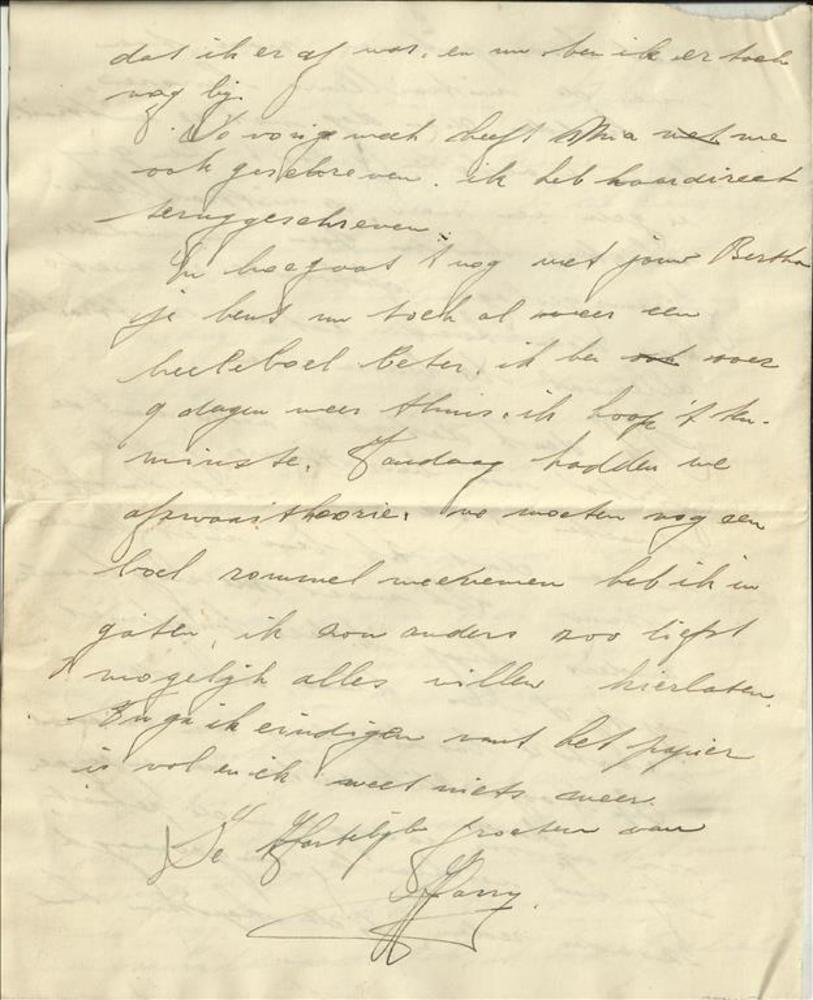 dat ik er af was, en nu ben ik er toch
nog bij.
Zo vorig week heeft Mia met me
ook geschreven. ik heb haar direct
teruggeschreven.
En hoe gaat 't nog met jouw Bertha
je bent nu toch al weer een
heeleboel beter, ik ben ook over
9 dagen weer thuis, ik hoop 't ten-
minste. Vandaag hadden we
afzwaaitheorie. we moeten nog een
boel rommel meenemen heb ik in
gaten, ik zou anders zoo liefst
mogelijk alles willen hierlaten.
Nu ga ik eindigen want het papier
is vol en ik weet niets meer.
De Hartelijke groeten van
Harry.